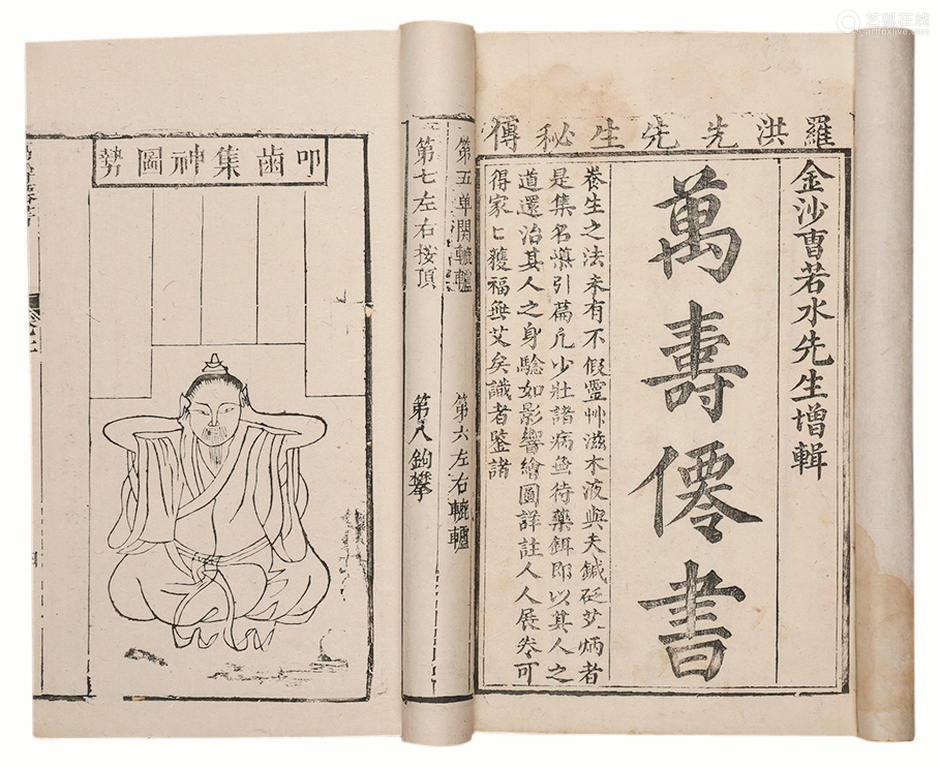 艺狐在线
artfoxlive.com
羅洪先先生秘傳
金沙曹若水先生增輯
萬壽僊書
養生之法未有不假靈艸滋木液與夫鍼砭艾炳者
是集名藥引篇凡少壯諸病無待藥餌即以其人之
道還治其人之身驗如影響繪圖詳註人人展卷可
得家匕獲福無艾矣識者鑒諸
第五单関轆轤
第六左右轆轤
第七左右按頂
第八鉤攀
叩齒集神圖勢